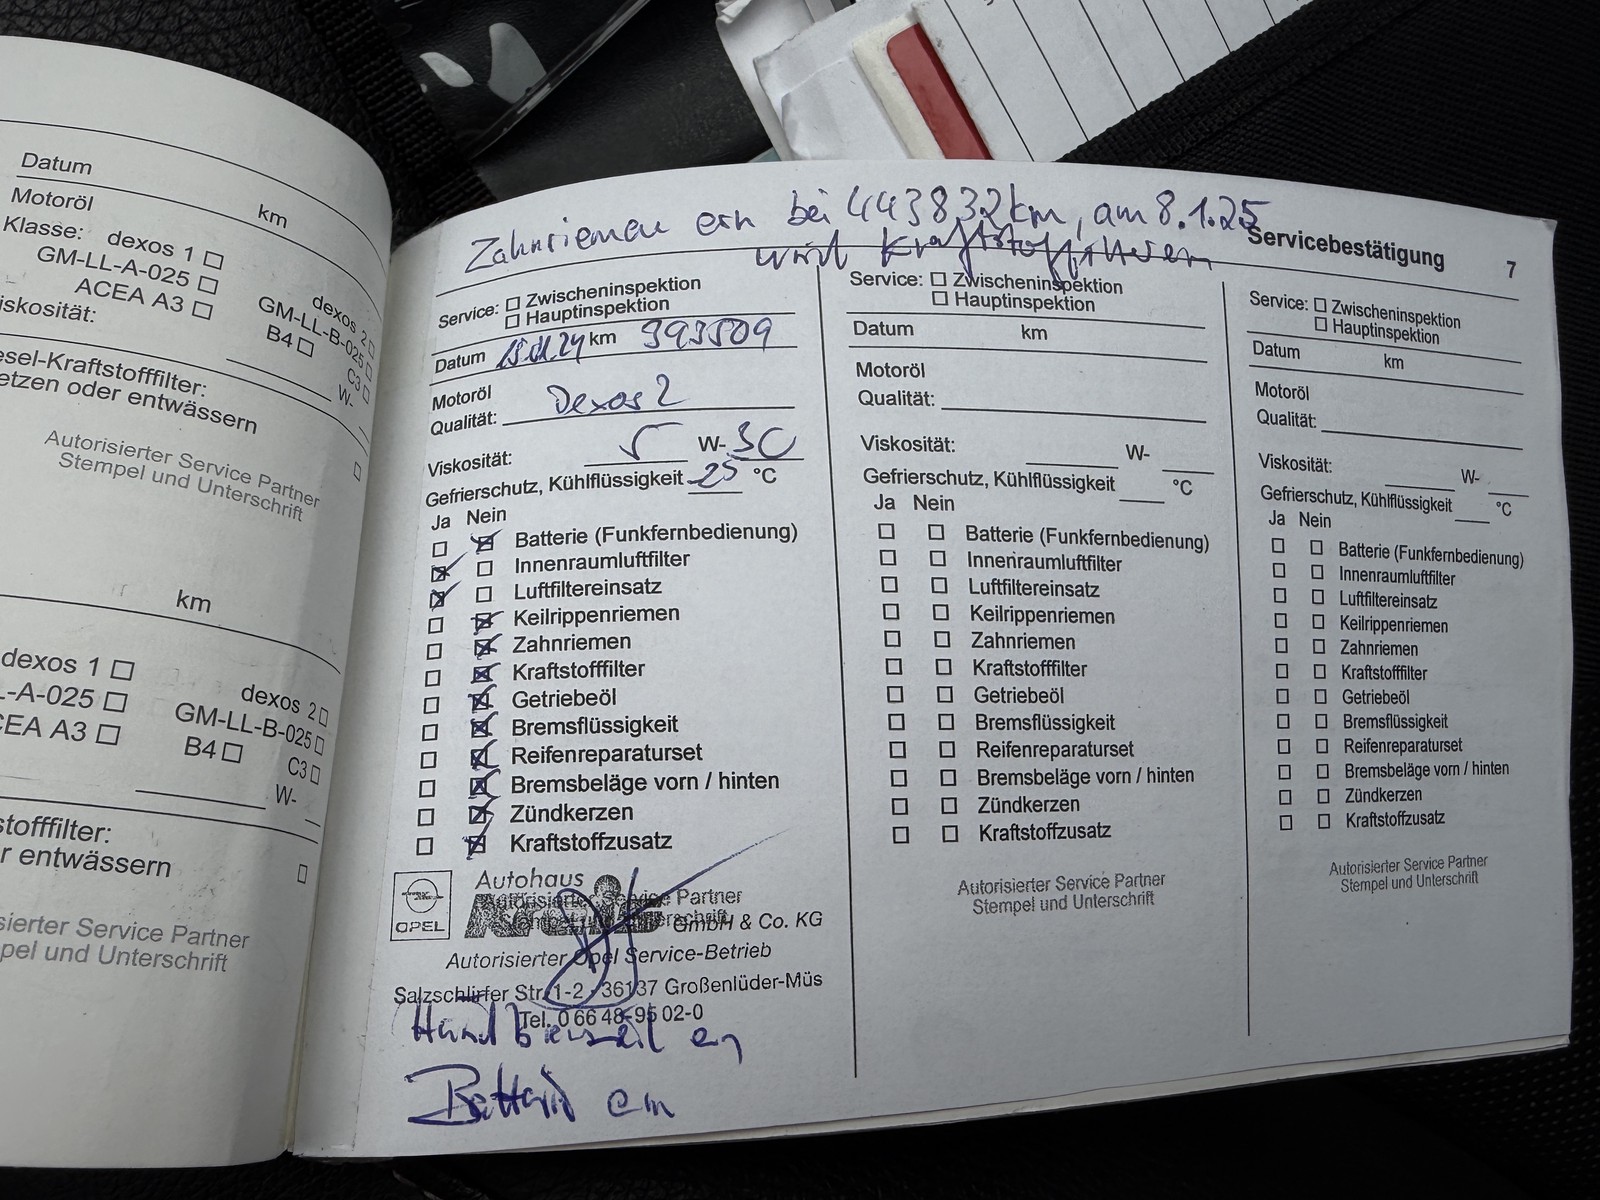 Datum
Motoröl km
Klasse: dexos 1 dexos 2
GM-LL-A-025 GM-LL-B-025
ACEA A3 B4 C3
W-
etzen oder entwässern
Autorisierter Service Partner
Stempel und Unterschrift
km
dexos 1 dexos 2
GM-LL-B-025
B4 C3
W-
r entwässern
Zahnriemen ern bei 443832km, am 8.1.25
wird Kraftstofffilter
Servicebestätigung 7
Service: Zwischeninspektion
Hauptinspektion
Datum km 393509
Motoröl
Qualität: Dexos 2
Viskosität: 5 W- 30
Gefrierschutz, Kühlflüssigkeit -25 °C
Ja Nein
Batterie (Funkfernbedienung)
Innenraumluftfilter
Luftfiltereinsatz
Keilrippenriemen
Zahnriemen
Kraftstofffilter
Getriebeöl
Bremsflüssigkeit
Reifenreparaturset
Bremsbeläge vorn / hinten
Zündkerzen
Kraftstoffzusatz
Autorisierter Service Partner
Stempel und Unterschrift
OPEL
Autohaus
GmbH & Co. KG
Autorisierter Opel Service-Betrieb
Salzschlirfer Str. 1-2 - 36137 Großenlüder-Müs
Tel. 0 66 48-95 02-0
Batterie ern
Service: Zwischeninspektion
Hauptinspektion
Datum km
Motoröl
Qualität:
Viskosität: W-
Gefrierschutz, Kühlflüssigkeit °C
Ja Nein
Batterie (Funkfernbedienung)
Innenraumluftfilter
Luftfiltereinsatz
Keilrippenriemen
Zahnriemen
Kraftstofffilter
Getriebeöl
Bremsflüssigkeit
Reifenreparaturset
Bremsbeläge vorn / hinten
Zündkerzen
Kraftstoffzusatz
Autorisierter Service Partner
Stempel und Unterschrift
Service: Zwischeninspektion
Hauptinspektion
Datum km
Motoröl
Qualität:
Viskosität: W-
Gefrierschutz, Kühlflüssigkeit °C
Ja Nein
Batterie (Funkfernbedienung)
Innenraumluftfilter
Luftfiltereinsatz
Keilrippenriemen
Zahnriemen
Kraftstofffilter
Getriebeöl
Bremsflüssigkeit
Reifenreparaturset
Bremsbeläge vorn / hinten
Zündkerzen
Kraftstoffzusatz
Autorisierter Service Partner
Stempel und Unterschrift